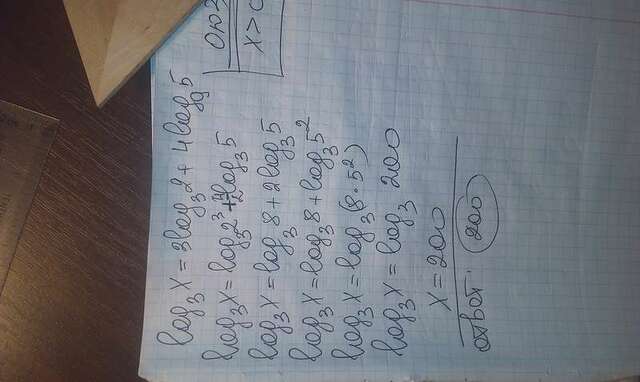 ОДЗ
x>0
log₃x = 3log₃2 + 4log₉5
log₃x = log₃2³ + 2log₃5
log₃x = log₃8 + 2log₃5
log₃x = log₃8 + log₃5²
log₃x = log₃(8·5²)
log₃x = log₃ 200
x = 200
ответ: 200